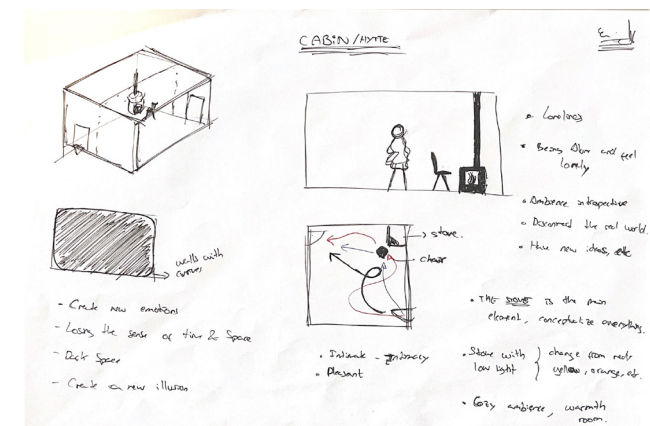 CABIN/HYTTE
walls with
curves
- Create new emotions
- Losing the sense of time & Space
- Dark Space
- Create a new illusion
→ stove.
chair
• Intimate - Intimacy
• Pleasant
• Loneliness
• Being Alone and feel
lonely
• Ambience introspective
• Disconnect the real world.
• Have new ideas, etc
• THE STOVE is the main
element, conceptualize everything.
• Stove with
low light
change from red,
yellow, orange, etc.
• Cozy ambience, warmth
room.